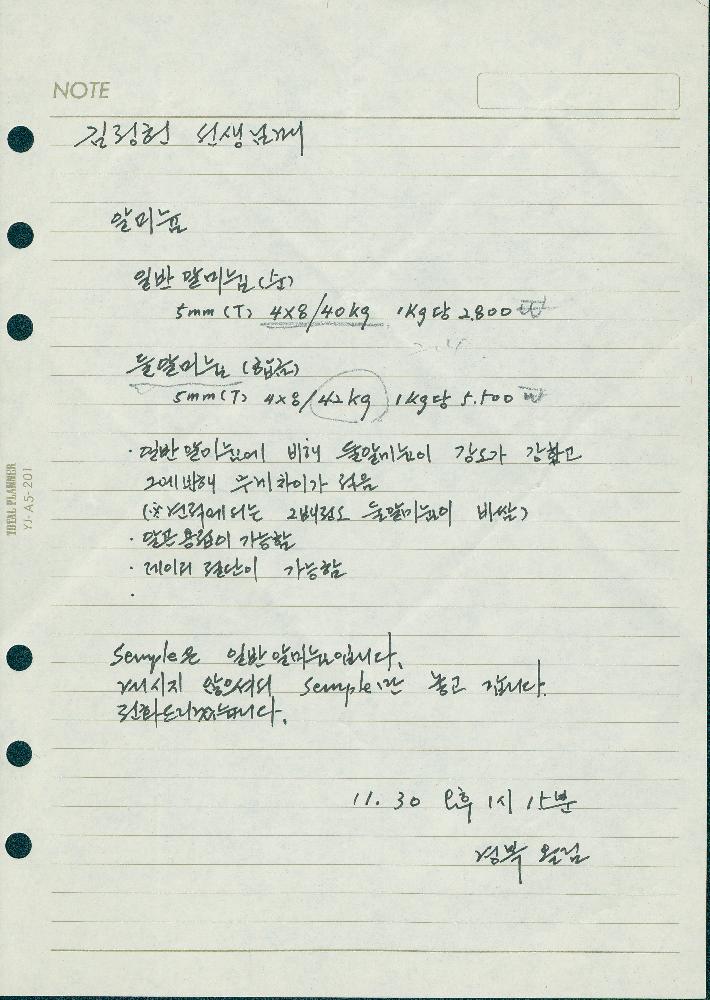 NOTE
김정헌 선생님께
알미늄
일반 알미늄 (순)
5mm (T) 4x8/40kg 1kg당 2,800
듈알미늄 (합금)
5mm (T) 4x8/42kg 1kg당 5.500
· 일반 알미늄에 비해 듈알미늄이 강도가 강하고
그에 반해 무게차이가 적음
(※ 면적에 2배정도 듈알미늄이 비쌈)
· 알곤용접이 가능함
· 레이저 절단이 가능함
·
Semple은 일반 알미늄입니다.
계시지 않으셔서 Semple만 놓고 갑니다.
전화드리겠습니다.
11. 30 오후 1시 15분
올림
TOTAL PLANNER
YJ-A5-201